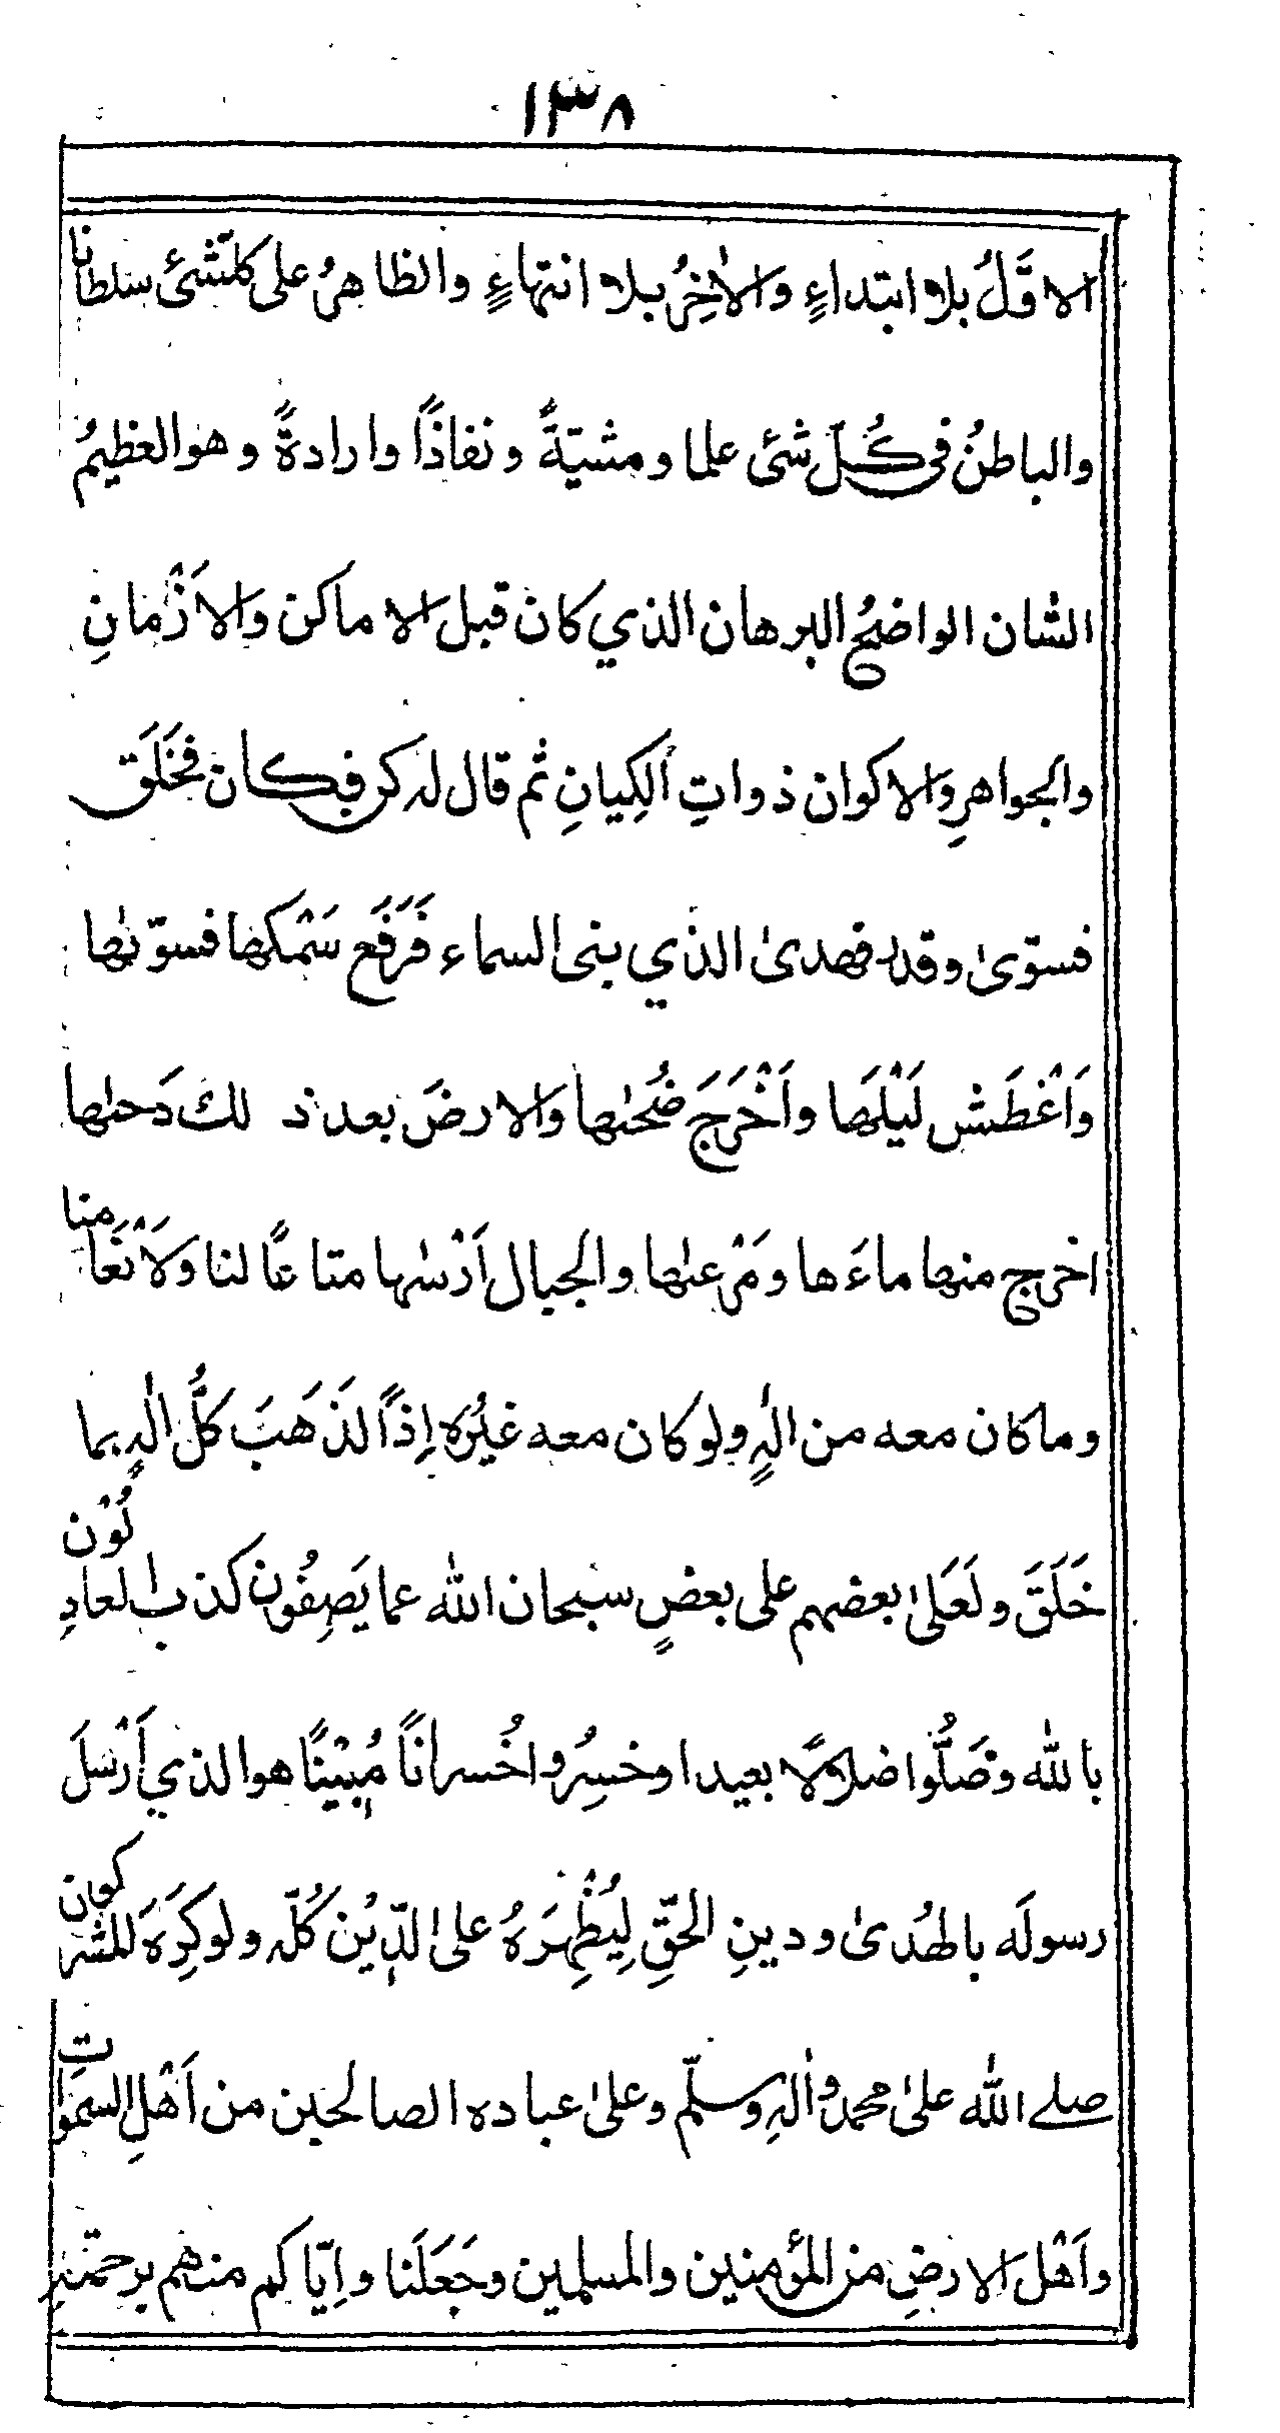 ١٣٨
الاوّلُ بلا ابتداءٍ والاٰخِرُ بلا انتهاءٍ والظاهرُ على كلّشئ سلطانا
والباطنُ فى كُلّ شئ علما ومشيّةً ونفاذًا وارادةً وهو العظيمُ
الشان الواضحُ البرهان الذي كان قبل الاماكن والاَزْمانِ
والجواهرِ والاكوان ذواتِ الكِيانِ ثم قال له كن فكان فخَلَق
فسوّىٰ وقدر فهدىٰ الذي بنى السماء فَرَفَع سَمْكها فسوّىٰها
وَاَغْطَش لَيْلَها واَخْرَجَ ضُحٰىها والارضَ بعد ذلك دَحٰىها
اخرج منها ماءَها ومَرْعٰىها والجبال اَرْسٰىها متاعًا لنا ولاَنْعَامنا
وما كان معه من الٰهٍ ولو كان معه غيُره اِذًا لذَهَبَ كلُّ الٰهٍ بما
خَلَقَ ولَعَلىٰ بعضهم على بعضٍ سبحان اللّٰه عما يَصِفُون كذب العادِلُوْن
باللّٰه وضَلُّوا ضلالًا بعيدا وخسِرُوا خُسرانًا مُبِيْنًا هو الذي اَرْسَلَ
رسولَه بالهُدىٰ ودينِ الحقِّ لِيُظْهِرَهُ علىٰ الدِّيْن كُلّه ولو كَرِهَ المشركون
صلے اللّٰه علىٰ محمد واٰلهِ وسلّم وعلىٰ عباده الصالحين من اَهْلِ السمَوٰاتِ
واَهْل الارضِ من المؤمنين والمسلمين وجَعَلَنا واِيّاكم منهم برحمتهِ